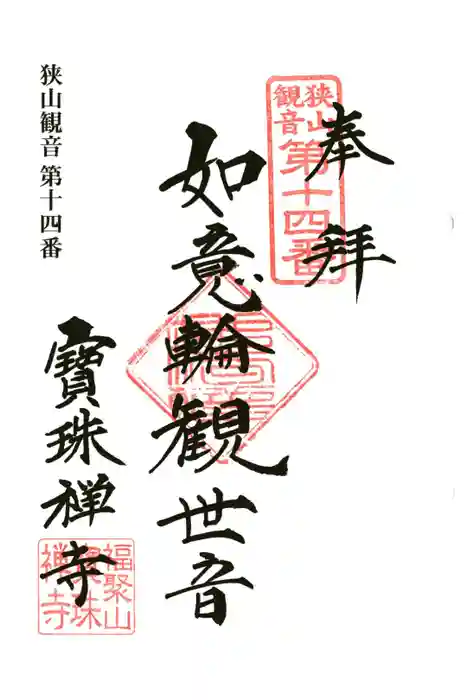 奉拜
狭山
観音
第十四番
如意輪観世音
狭山観音 第十四番
寶珠禅寺
福聚山
寶珠
禅寺